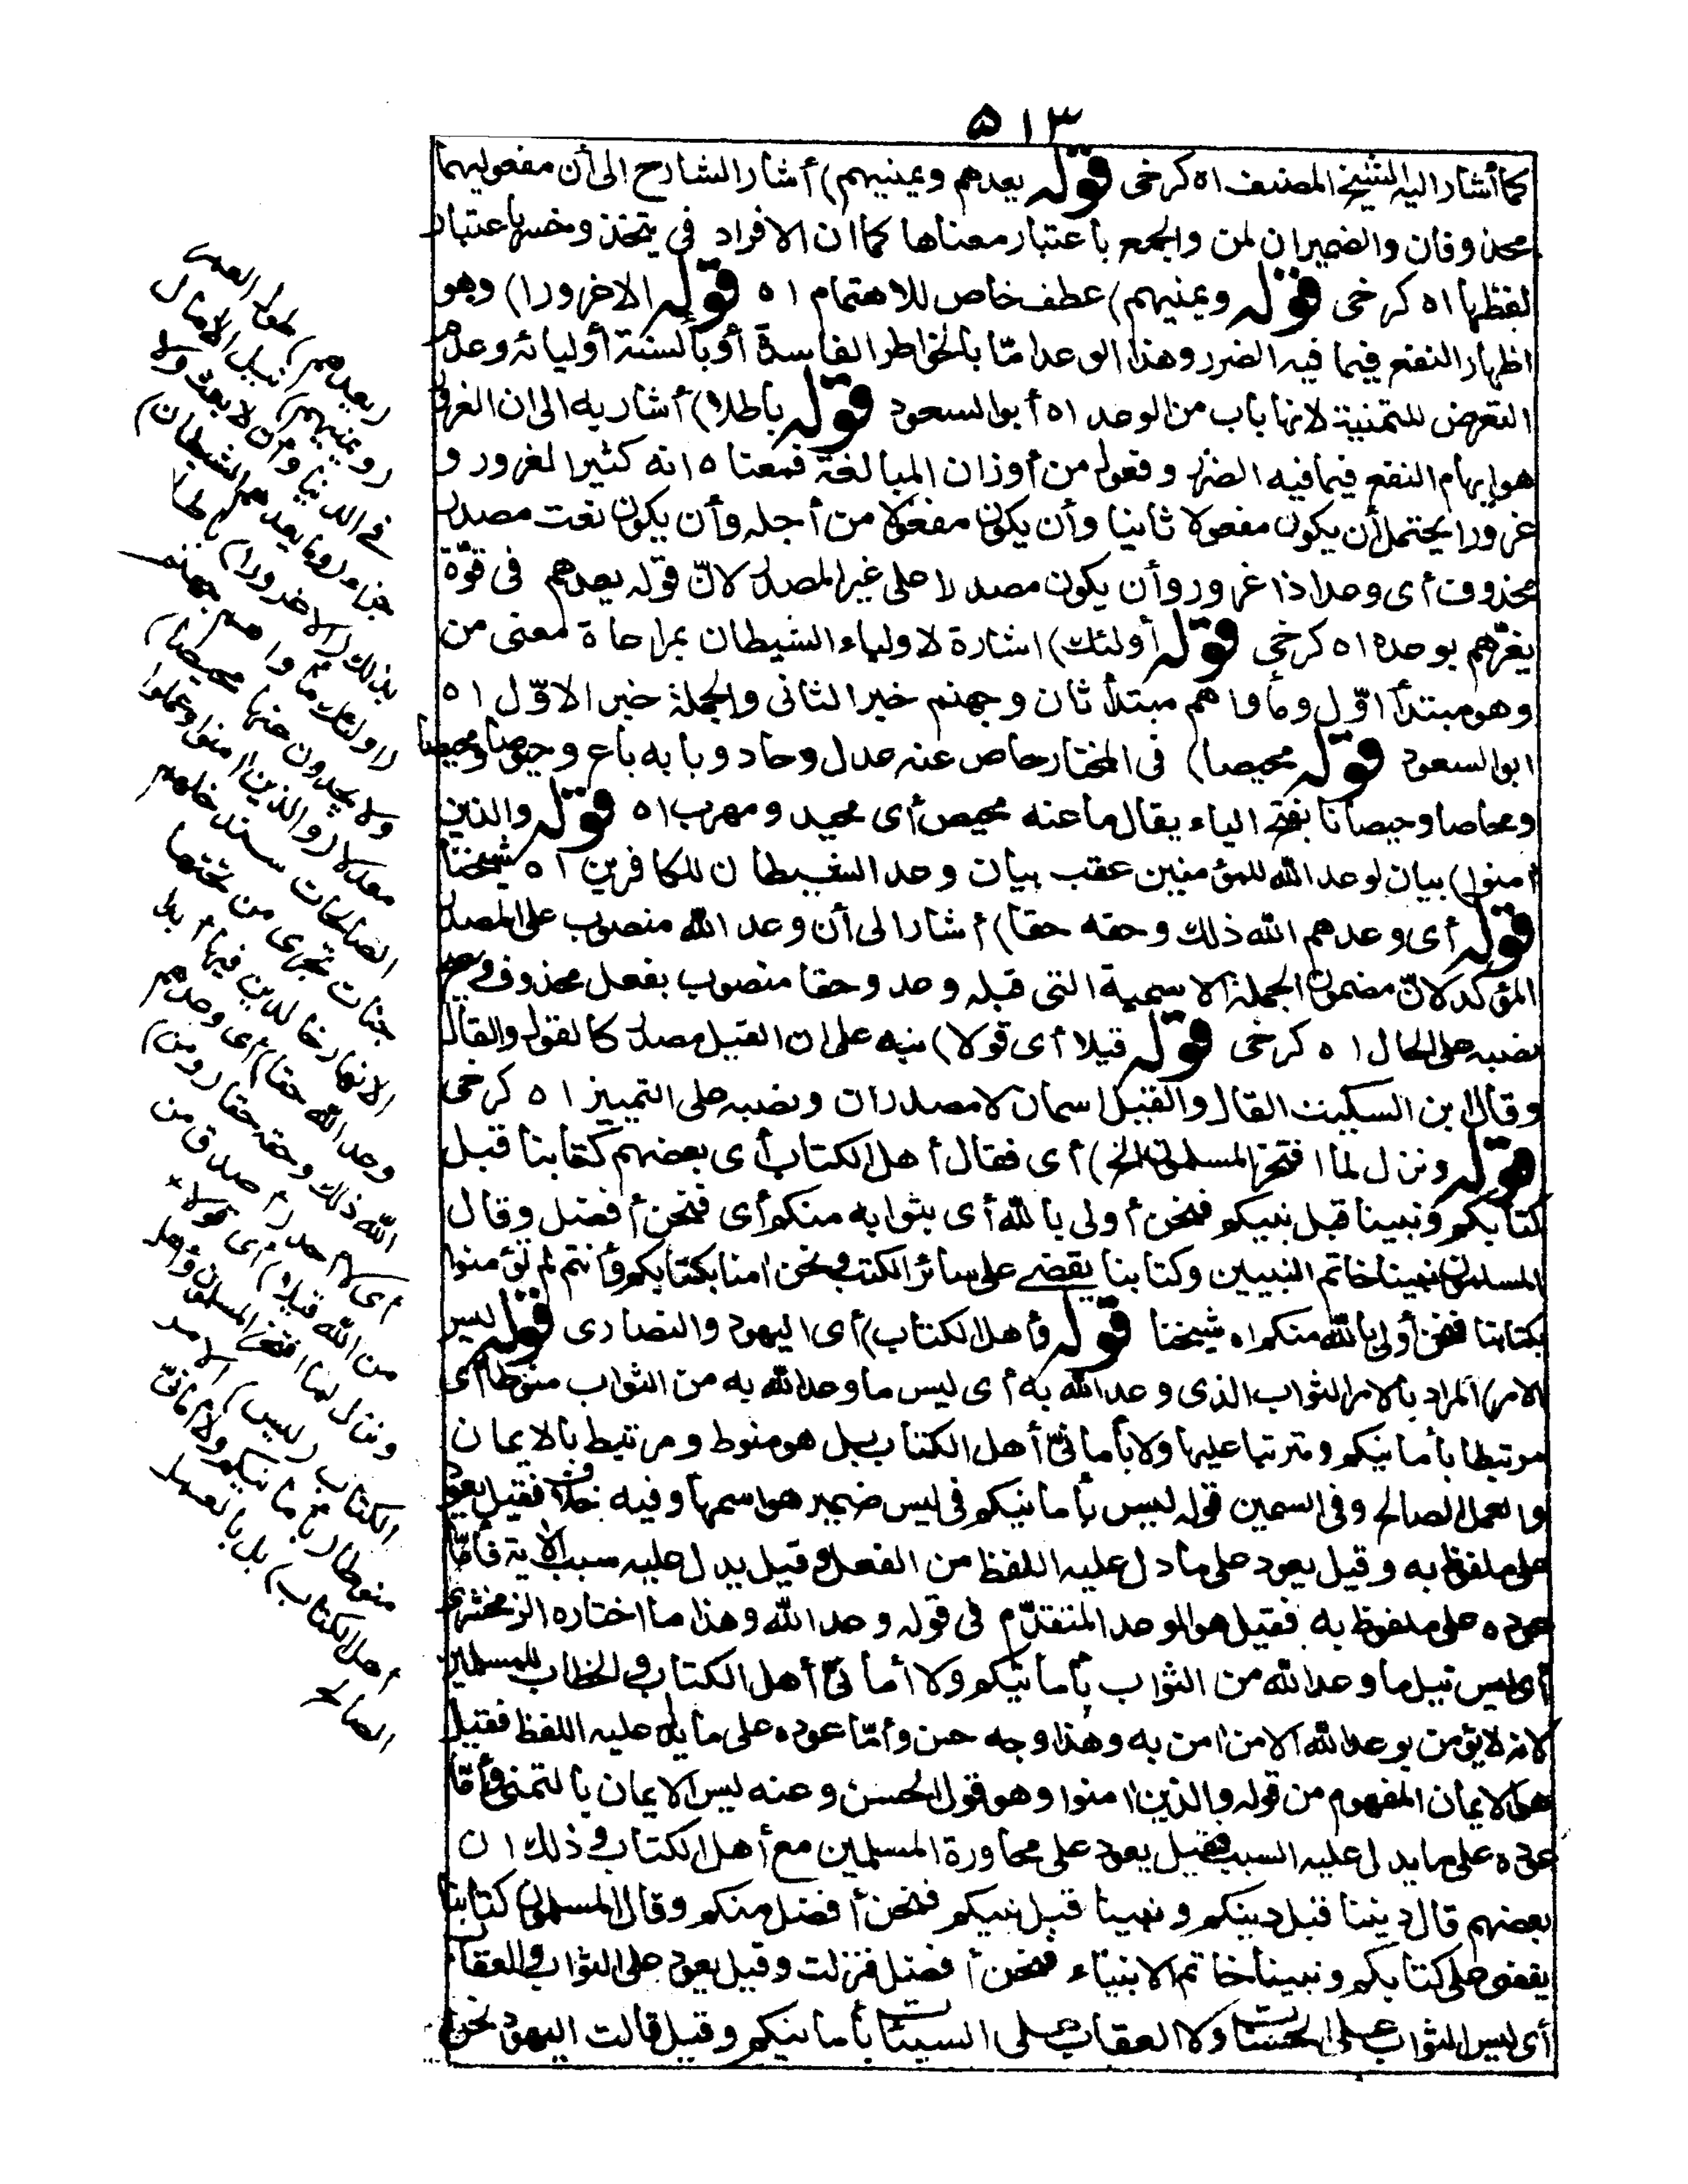 ٥١٣
كما أشار اليه الشيخ المصنف اه كرخى قوله يعدهم ويمنيهم) أشار الشارح الى أن مفعوليهما
محذوفان والضميران لمن والجمع باعتبار معناها كما ان الافراد فى يتخذ وخسر باعتبار
لفظها اه كرخى قوله ويمنيهم) عطف خاص للاهتمام اه قوله الا غرورا) وهو
اظهار النفع فيما فيه الضرر وهذا الوعد امّا بالخواطر الفاسدة أو بألسنة أوليائه وعدم
التعرض للتمنية لانها باب من الوعد اه أبو السعود قوله باطلا) أشار به الى ان الغرور
هو ايهام النفع فيما فيه الضرر وفعول من أوزان المبالغة فمعناه انه كثير الغرور و
غرورا يحتمل أن يكون مفعولا ثانيا وأن يكون مفعولا من أجله وأن يكون نعت مصدر
محذوف أى وعدا ذا غرور وأن يكون مصدرا على غير المصدر لانّ قوله يعدهم فى قوّة
يغرّهم بوعده اه كرخى قوله أولئك) اشارة لاولياء الشيطان بمراعاة معنى من
وهو مبتدأ اوّل ومأواهم مبتدأ ثان وجهنم خبر الثانى والجملة خبر الاوّل اه
ابو السعود قوله محيصا) فى المختار حاص عنه عدل وحاد وبابه باع وحيوصا ومحيصا
ومحاصا وحيصانا بفتح الياء يقال ما عنه محيص أى محيد ومهرب اه قوله والذين
امنوا) بيان لوعد الله للمؤمنين عقب بيان وعد الشيطان للكافرين اه شيخنا
قوله أى وعدهم الله ذلك وحقه حقا) أشار الى أن وعد الله منصوب على المصدر
المؤكد لانّ مضمون الجملة الاسمية التى قبله وعد وحقا منصوب بفعل محذوف ويصح
نصبه على الحال اه كرخى قوله قيلا أى قولا) نبه على ان القيل مصدر كالقول والقال
وقال ابن السكيت القال والقيل اسمان لا مصدران ونصبه على التمييز اه كرخى
قوله ونزل لما افتخر المسلمون الخ) أى فقال أهل الكتاب أى بعضهم كتابنا قبل
كتابكم ونبينا قبل نبيكم فنحن أولى بالله أى بثوابه منكم أى فنحن أفضل وقال
المسلمون نبينا خاتم النبيين وكتابنا يقضى على سائر الكتب ونحن امنا بكتابكم وأنتم لم تؤمنوا
بكتابنا فنحن أولى بالله منكم اه شيخنا قوله وأهل الكتاب) أى اليهود والنصارى قوله ليس
الامر) المراد بالامر الثواب الذى وعد الله به أى ليس ما وعد الله به من الثواب منوطا أى
مرتبطا بأمانيكم ومترتبا عليها ولا بأمانىّ أهل الكتاب بل هو منوط ومرتبط بالايمان
والعمل الصالح وفى السمين قوله ليس بأمانيكم فى ليس ضمير هو اسمها وفيه خلاف فقيل يعود
على ملفوظ به وقيل يعود على ما دل عليه اللفظ من الفعل وقيل يدل عليه سبب الاية فأمّا
عوده على ملفوظ به فقيل هو الوعد المتقدّم فى قوله وعد الله وهذا ما اختاره الزمخشرى
أى ليس نيل ما وعد الله من الثواب بأمانيكم ولا أمانىّ أهل الكتاب والخطاب للمسلمين
لانه لا يؤمن بوعد الله الا من امن به وهذا وجه حسن وأمّا عوده على ما يدل عليه اللفظ فقيل
هو الايمان المفهوم من قوله والذين امنوا وهو قول الحسن وعنه ليس الايمان بالتمنى وأمّا
عوده على ما يدل عليه السبب فقيل يعود على محاورة المسلمين مع أهل الكتاب وذلك ان
بعضهم قال ديننا قبل دينكم ونبينا قبل نبيكم فنحن أفضل منكم وقال المسلمون كتابنا
يقضى على كتابكم ونبينا خاتم الانبياء فنحن أفضل فنزلت وقيل يعود على الثواب والعقاب
أى ليس الثواب على الحسنات ولا العقاب على السيئات بأمانيكم وقيل قالت اليهود نحن
(يعدهم) طول العمر
(ويمنيهم) نيل الامال
فى الدنيا وأن لا بعث ولا
جزاء (وما يعدهم الشيطان)
بذلك (الا غرورا) باطلا
(أولئك مأواهم جهنم
ولا يجدون عنها محيصا)
معدلا (والذين امنوا وعملوا
الصالحات سندخلهم
جنات تجرى من تحتها
الانهار خالدين فيها أبدا
وعد الله حقا) أى وعدهم
الله ذلك وحقه حقا (ومن)
أى لا أحد (أصدق من
الله قيلا) أى قولا
ونزل لما افتخر المسلمون وأهل
الكتاب (ليس) الامر
منوطا (بأمانيكم ولا أمانىّ
أهل الكتاب) بل بالعمل
الصالح